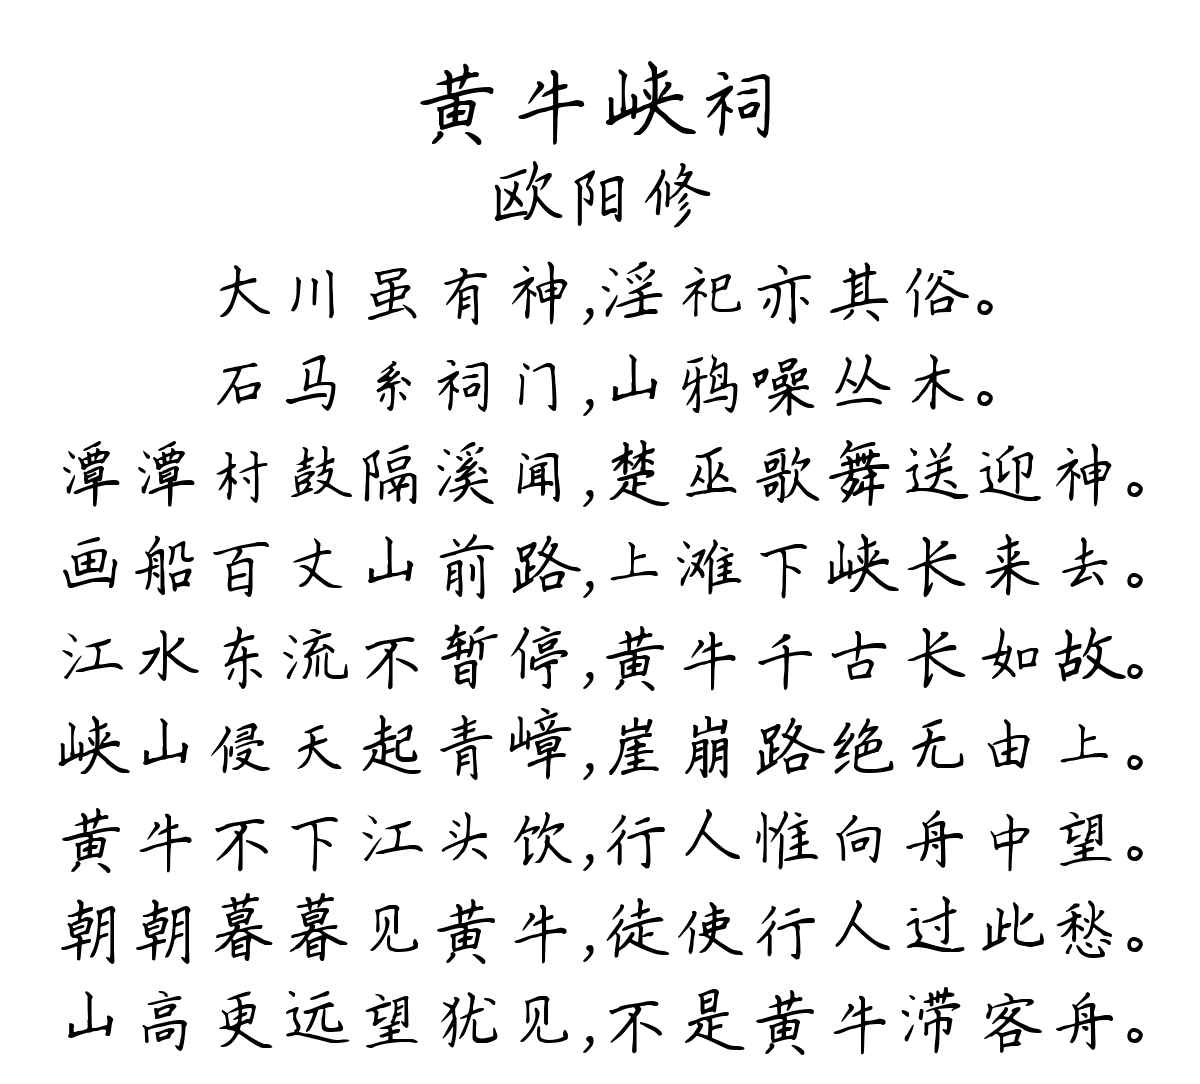 黄牛峡祠
欧阳修
大川虽有神,淫祀亦其俗。
石马系祠门,山鸦噪丛木。
潭潭村鼓隔溪闻,楚巫歌舞送迎神。
画船百丈山前路,上滩下峡长来去。
江水东流不暂停,黄牛千古长如故。
峡山侵天起青嶂,崖崩路绝无由上。
黄牛不下江头饮,行人惟向舟中望。
朝朝暮暮见黄牛,徒使行人过此愁。
山高更远望犹见,不是黄牛滞客舟。